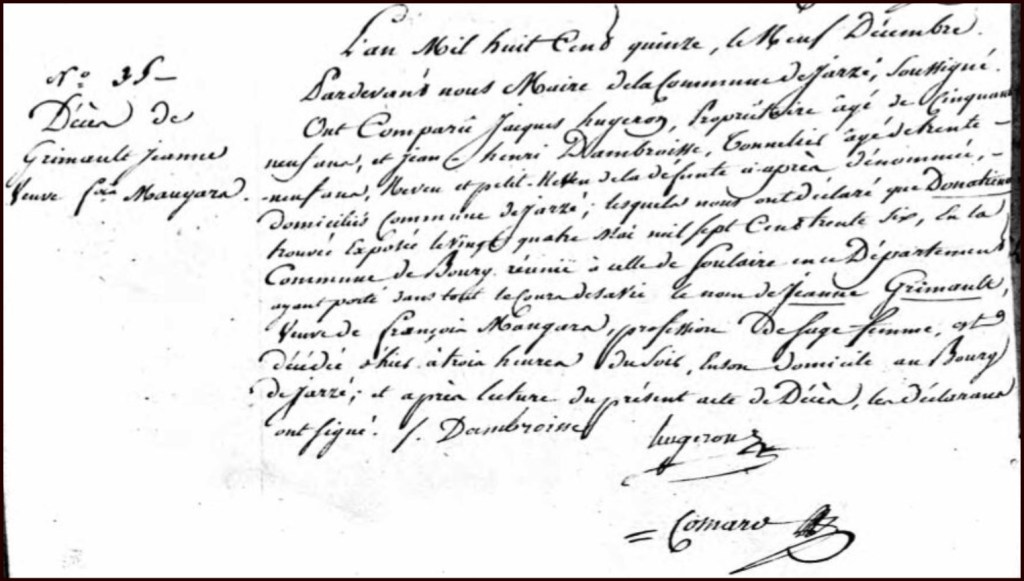 N.o 35 —
Décès de
Grimault Jeanne
Veuve f.ois Maugars.
L'an Mil huit Cens quinze, le Neuf Décembre.
Pardevant nous Maire de la Commune de Jarzé, Soussigné.
Ont Comparû Jacques hugeron, Propriétaire âgé de Cinquante
neuf ans, et Jean-henri Dambroisse, Tonnelier âgé de trente-
neuf ans, Neveu et petit-Neveu de la défunte ci-après dénommée, -
domiciliés Commune de Jarzé; lesquels nous ont déclaré que Donatienne
trouvée Exposée le vingt quatre Mai mil sept Cens trente Six, en la
Commune de Bourg réunie à celle de Soulaire en ce Département
ayant porté dans tout le Cours de sa vie le nom de Jeanne Grimault,
Veuve de François Maugars, profession de Sage-femme, est
décédée d'hier à trois heures du Soir, En son domicile au Bourg
de Jarzé; et après lecture du présent acte de Décès, les déclarans
ont Signé. J. Dambroisse
hugeron
= Comare